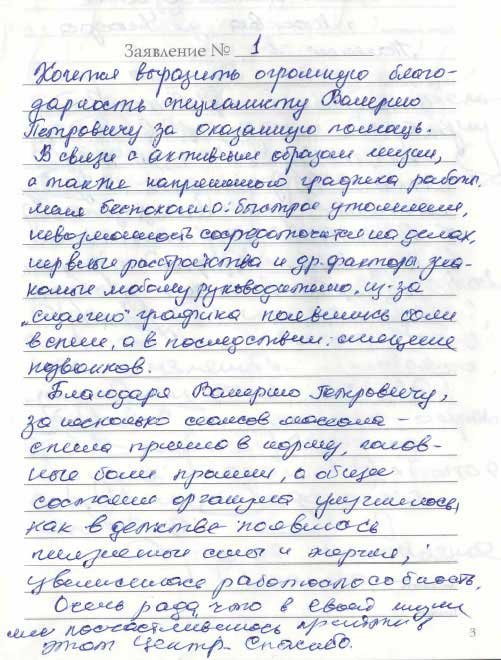 Заявление № 1
Хочется выразить огромную благо-
дарность специалисту Валерию
Петровичу за оказанную помощь.
В связи с активным образом жизни,
а также напряженного графика работы,
меня беспокоило: быстрое утомление,
невозможность сосредоточится на делах,
нервные расстройства и др. факторы, зна-
комые любому руководителю, из-за
"сидячего" графика появились боли
в спине, а в последствии: смещение
позвонков.
Благодаря Валерию Петровичу,
за несколько сеансов массажа -
спина пришла в норму, голов-
ные боли прошли, а общее
состояние организма улучшилось,
как в детстве появилась
жизненные силы и энергия,
увеличилась работоспособность.
Очень рада, что в своей жизни
мне посчастливилось прийти в
этот Центр. Спасибо.
3